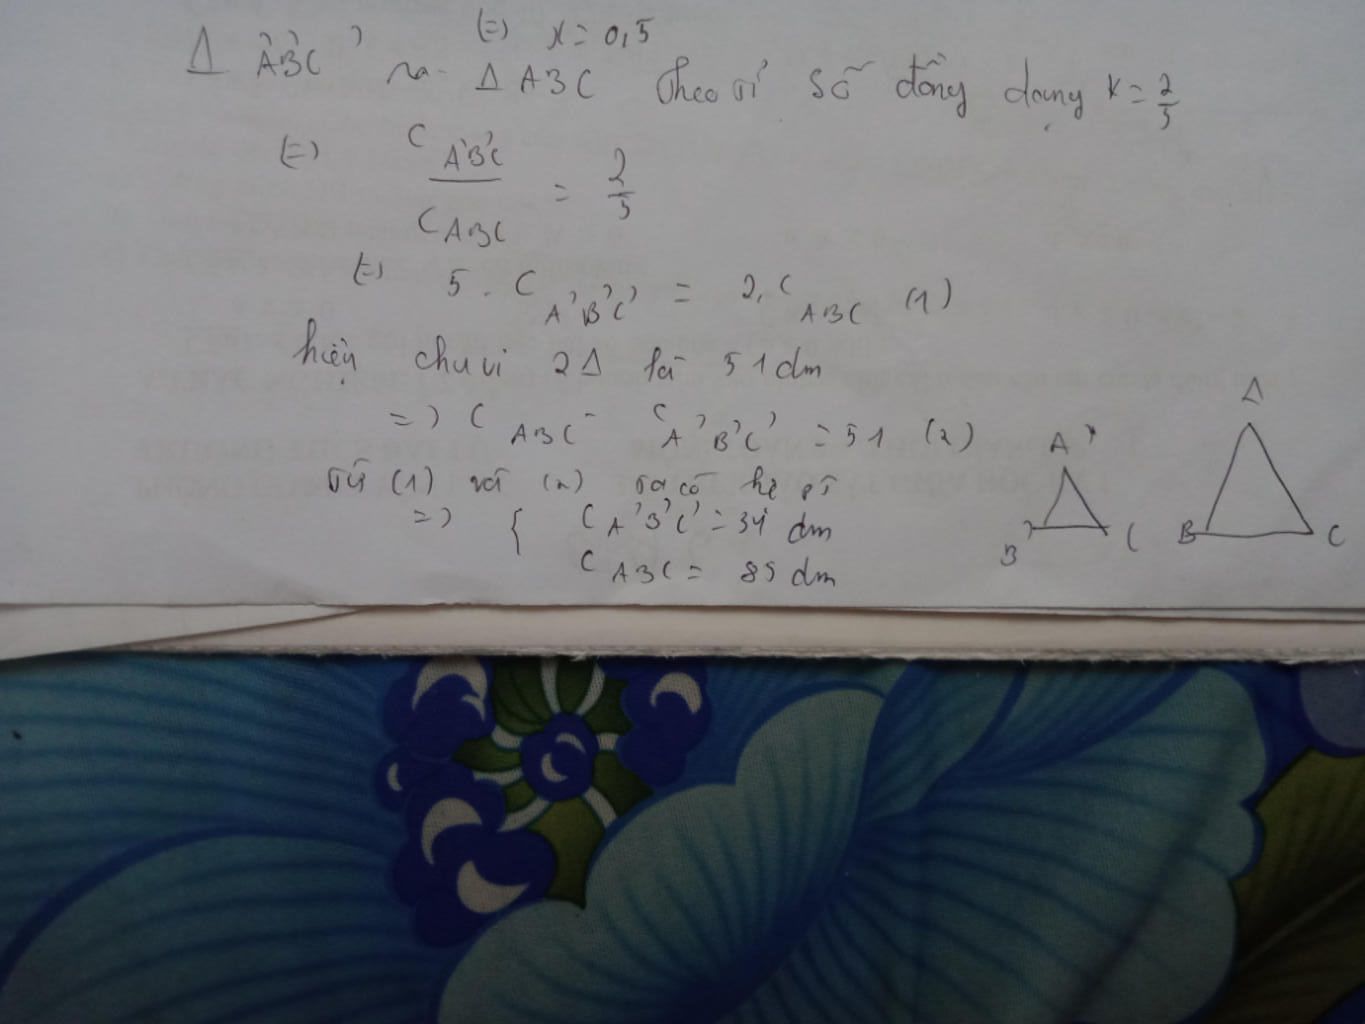 (=) x = 0,5
Δ A'B'C' ~ Δ ABC theo tỉ số đồng dạng k = 2/5
(=) C A'B'C' / C ABC = 2/5
(=) 5 . C A'B'C' = 2. C ABC (1)
hiện chu vi 2Δ là 51dm
=) C ABC - C A'B'C' = 51 (2)
từ (1) và (2) ta có hệ pt
=) { C A'B'C' = 34 dm
C ABC = 85 dm
A'
B'
C
A
B
C